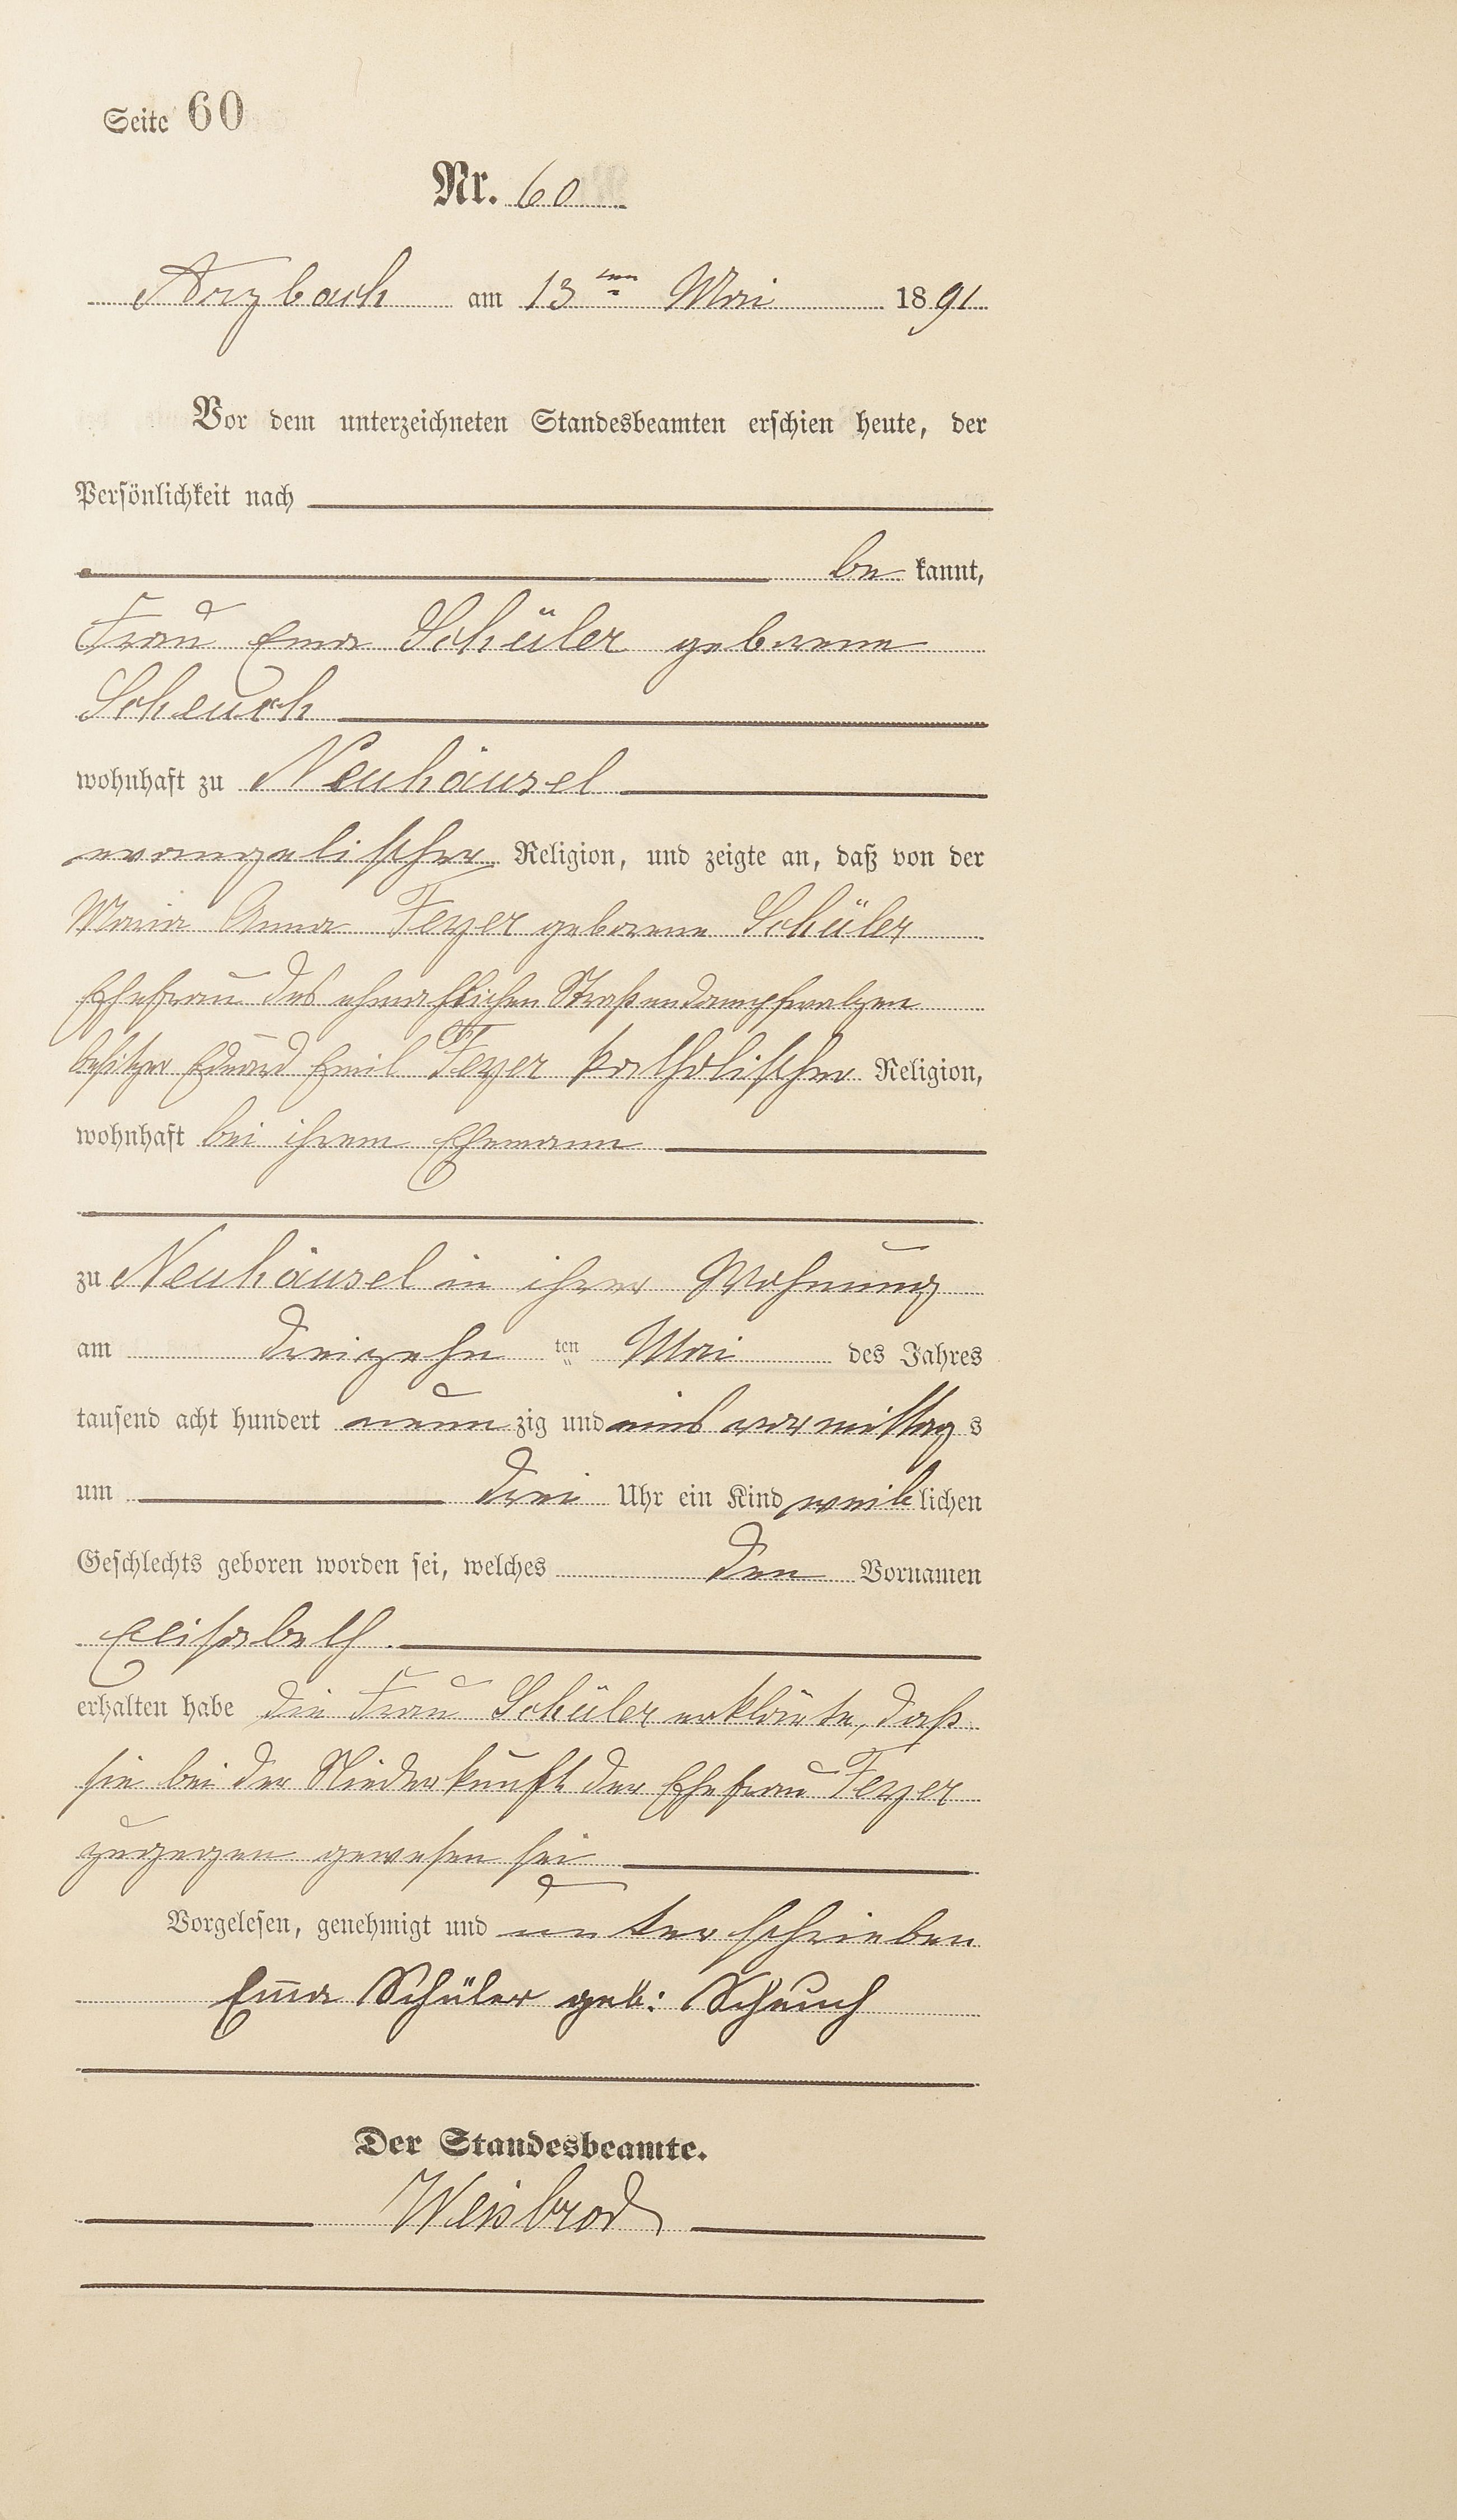 Seite 60
Nr. 60
Arzbach am 13ten Mai 1891
Vor dem unterzeichneten Standesbeamten erschien heute, der
Persönlichkeit nach
be kannt,
Frau Ema Schüler geborene
Scheuch
wohnhaft zu Neuhäusel
evangelischer Religion, und zeigte an, daß von der
Maria Anna Feyer geborene Schüler
Ehefrau des Straßendampfwalzen
besitzer Eduard Emil Feyer katholischer Religion,
wohnhaft bei ihrem Ehemann
zu Neuhäusel in ihrer Wohnung
am dreizehn ten Mai des Jahres
tausend acht hundert neun zig und eins vormittag s
um drei Uhr ein Kind weib lichen
Geschlechts geboren worden sei, welches den Vornamen
Elisabeth
erhalten habe die Frau Schüler erklärte, daß
sie bei der Niederkunft der Ehefrau Feyer
zugegen gewesen sei
Vorgelesen, genehmigt und unterschrieben
Em̅a Schüler geb: Scheuch
Der Standesbeamte.
Weisbrod